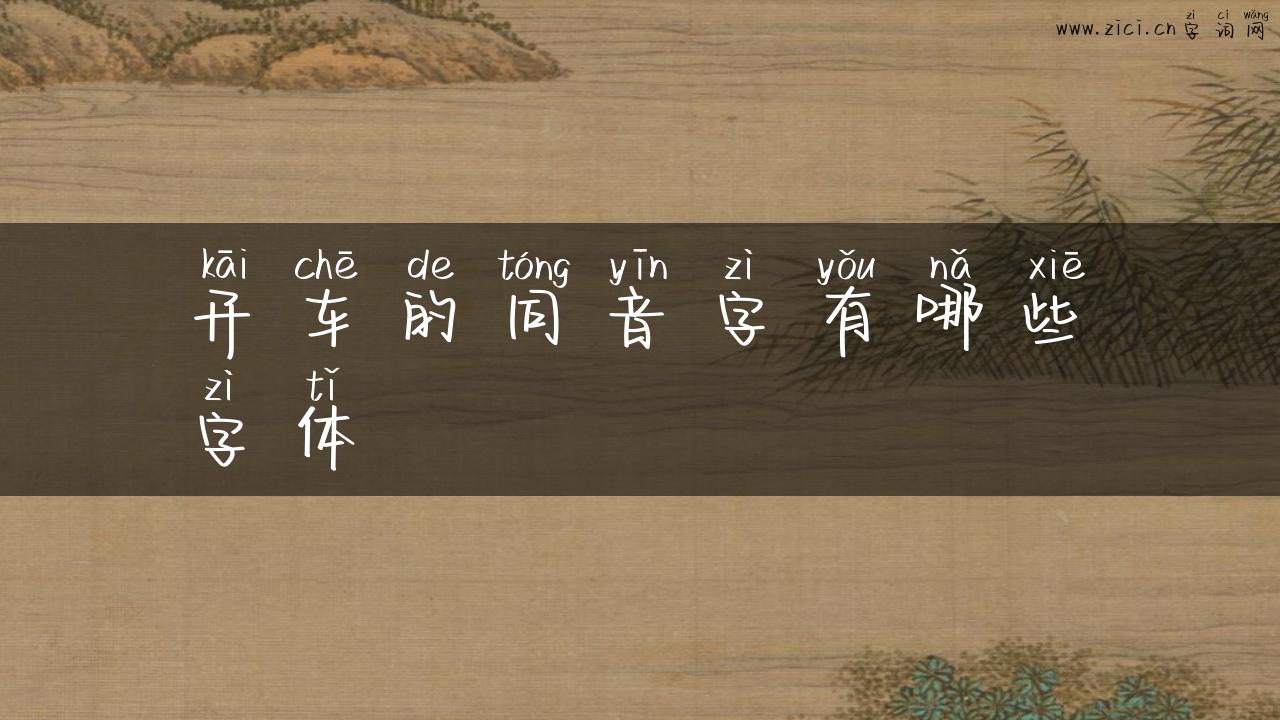 zì cí wǎng
www.zici.cn 字词网
kāi chē de tóng yīn zì yǒu nǎ xiē
开车的同音字有哪些
zì tǐ
字体